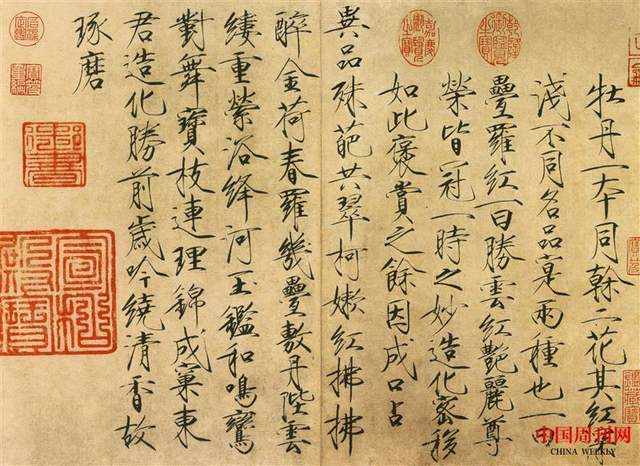 牡丹一本同榦二花其紅深
淺不同名品寔兩種也一曰
疊羅紅一曰勝雲紅艷麗尊
榮皆冠一時之妙造化密移
如此褒賞之餘因成口占
異品殊葩共翠柯嫩紅拂拂
醉金荷春羅幾疊敷丹陛雲
縷重縈浴絳河玉鑑和鳴鸞
對舞寶枝連理錦成窠東
君造化勝前歲吟繞清香故
琢磨
乾隆御覽之寶
嘉慶御覽之寶
御書
中国周刊网
CHINA WEEKLY